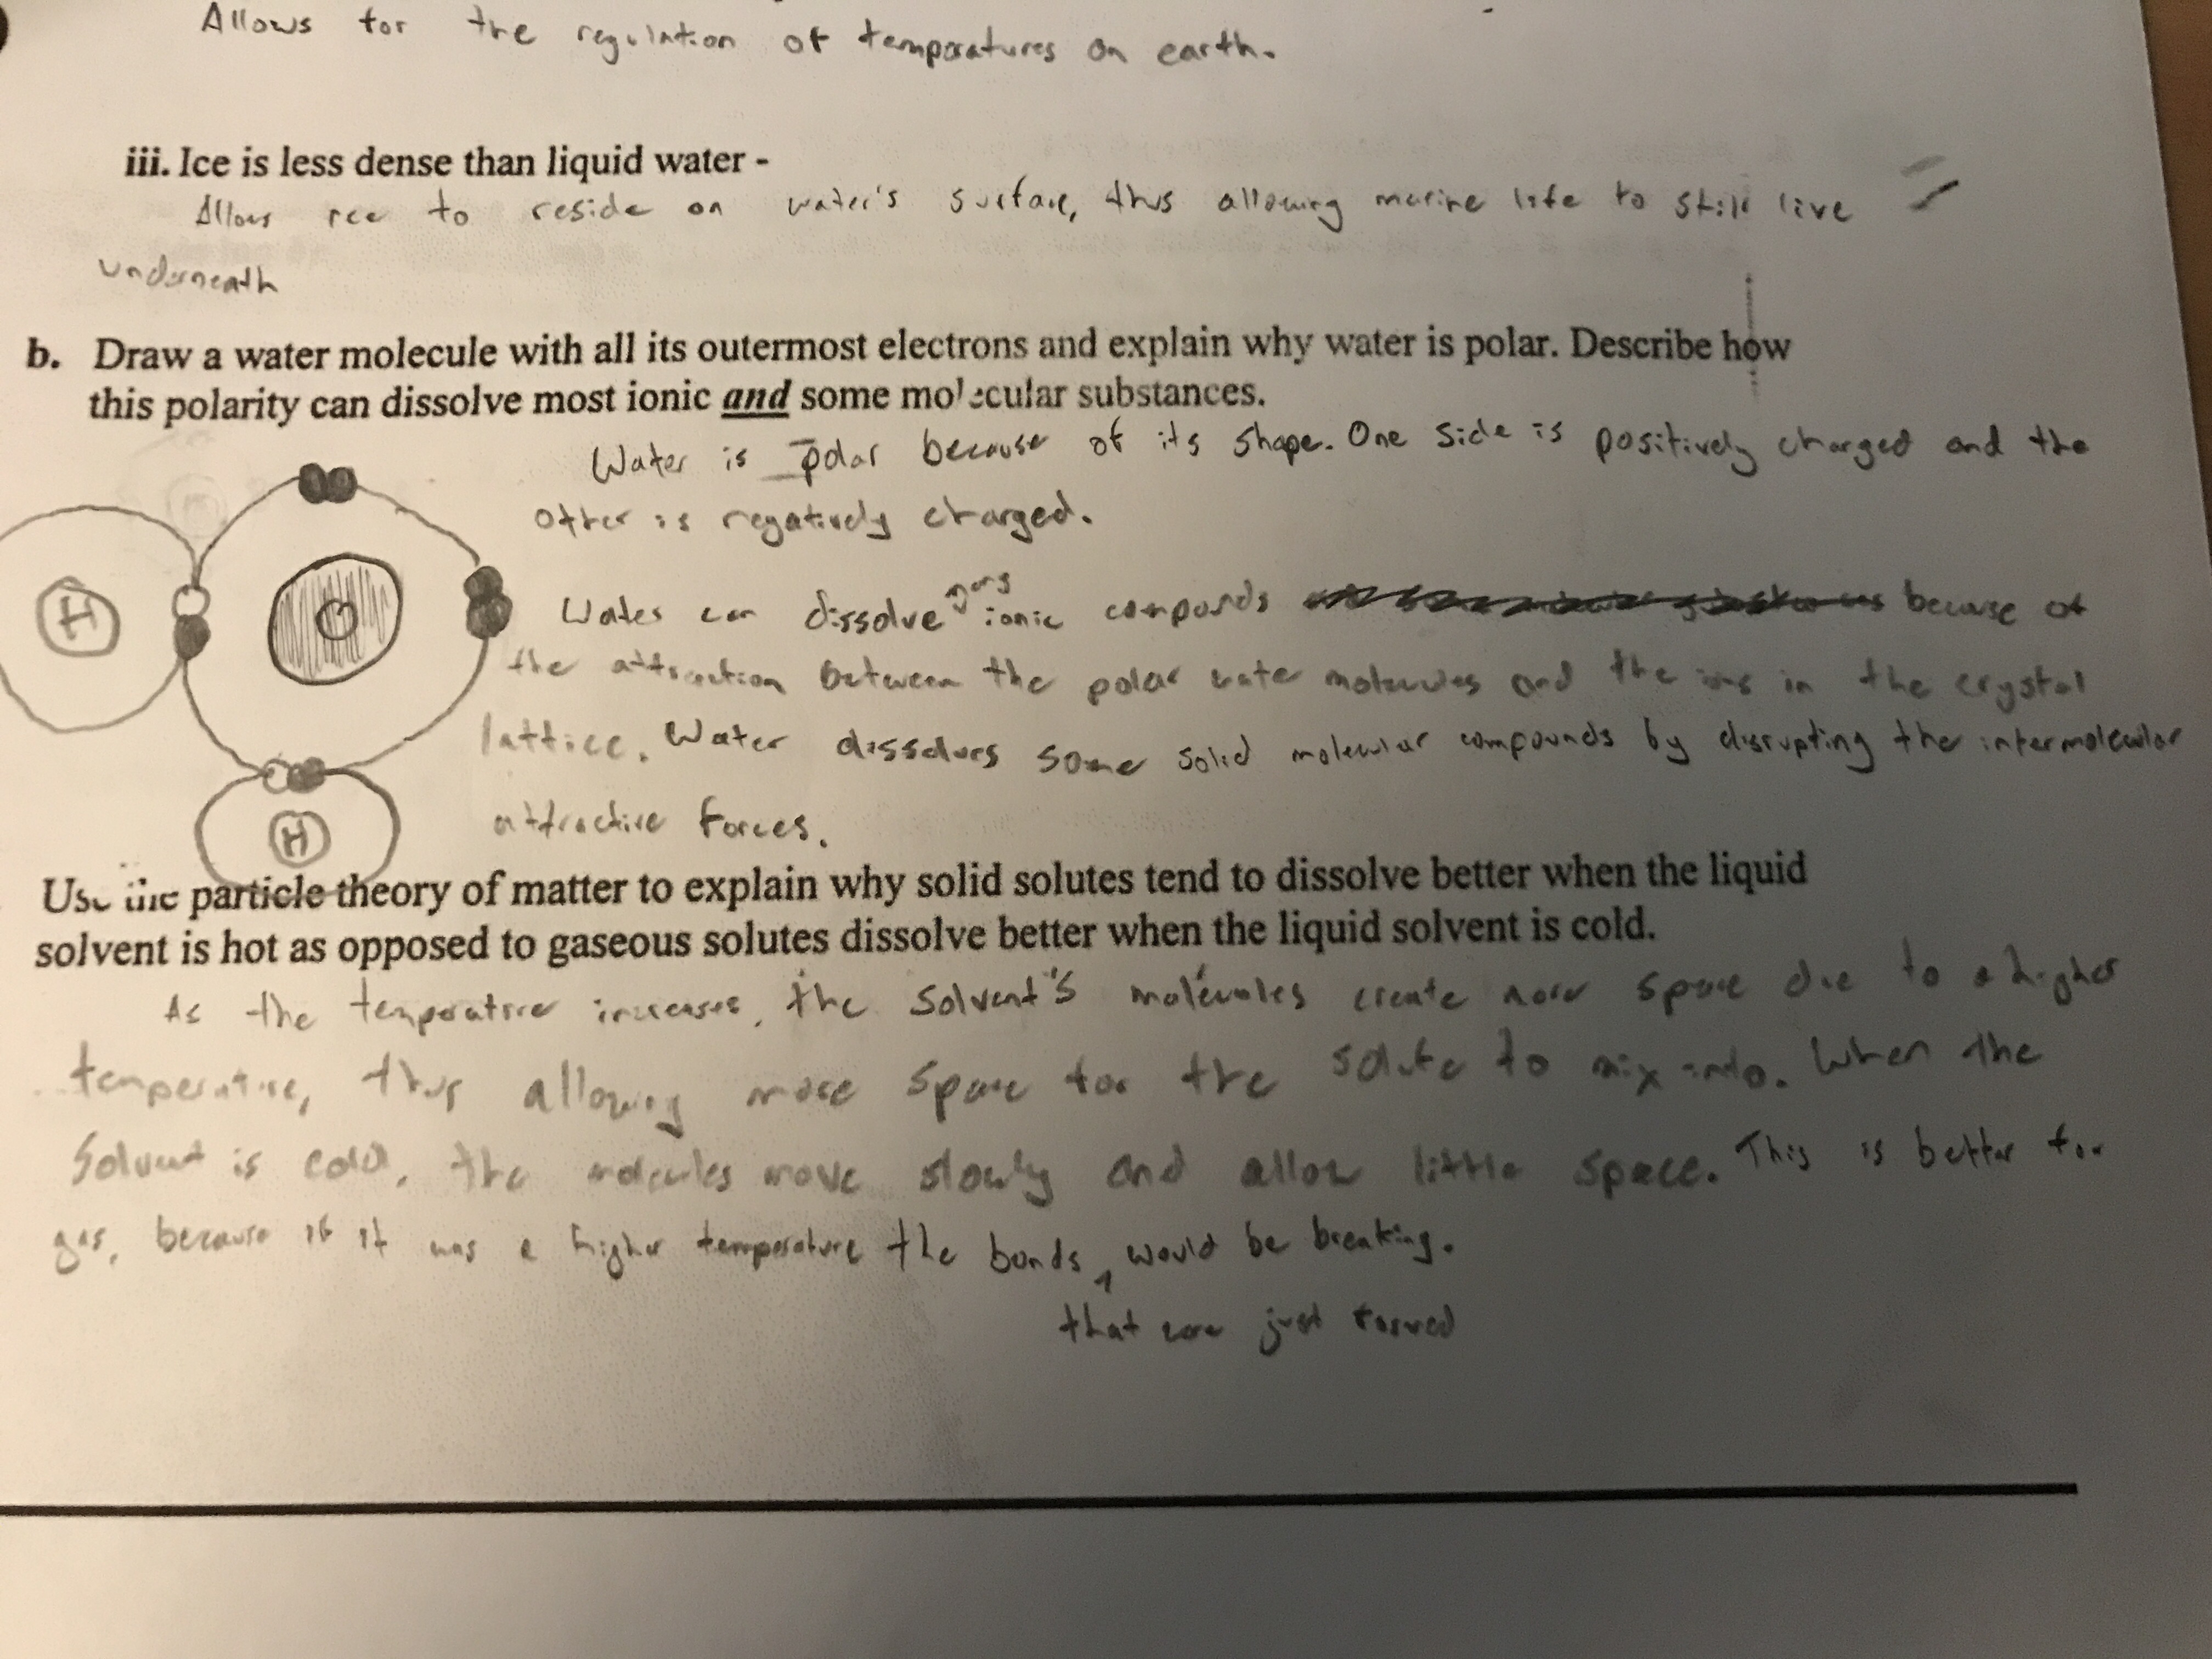 Allows for the regulation of temperatures on earth.
iii. Ice is less dense than liquid water -
Allows ice to reside on water's surface, thus allowing marine life to still live
underneath
b. Draw a water molecule with all its outermost electrons and explain why water is polar. Describe how
this polarity can dissolve most ionic and some molecular substances.
Water is polar because of its shape. One side is positively charged and the
other is negatively charged.
H
O
many
Water can dissolve ionic compounds because of
the attraction between the polar water molecules and the ions in the crystal
lattice. Water dissolves some solid molecular compounds by disrupting the intermolecular
attractive forces.
H
Use the particle theory of matter to explain why solid solutes tend to dissolve better when the liquid
solvent is hot as opposed to gaseous solutes dissolve better when the liquid solvent is cold.
As the temperature increases, the solvent's molecules create more space due to a higher
temperature, thus allowing more space for the solute to mix into. When the
solvent is cold, the molecules move slowly and allow little space. This is better for
gas, because if it was a higher temperature the bonds would be breaking.
that were just formed